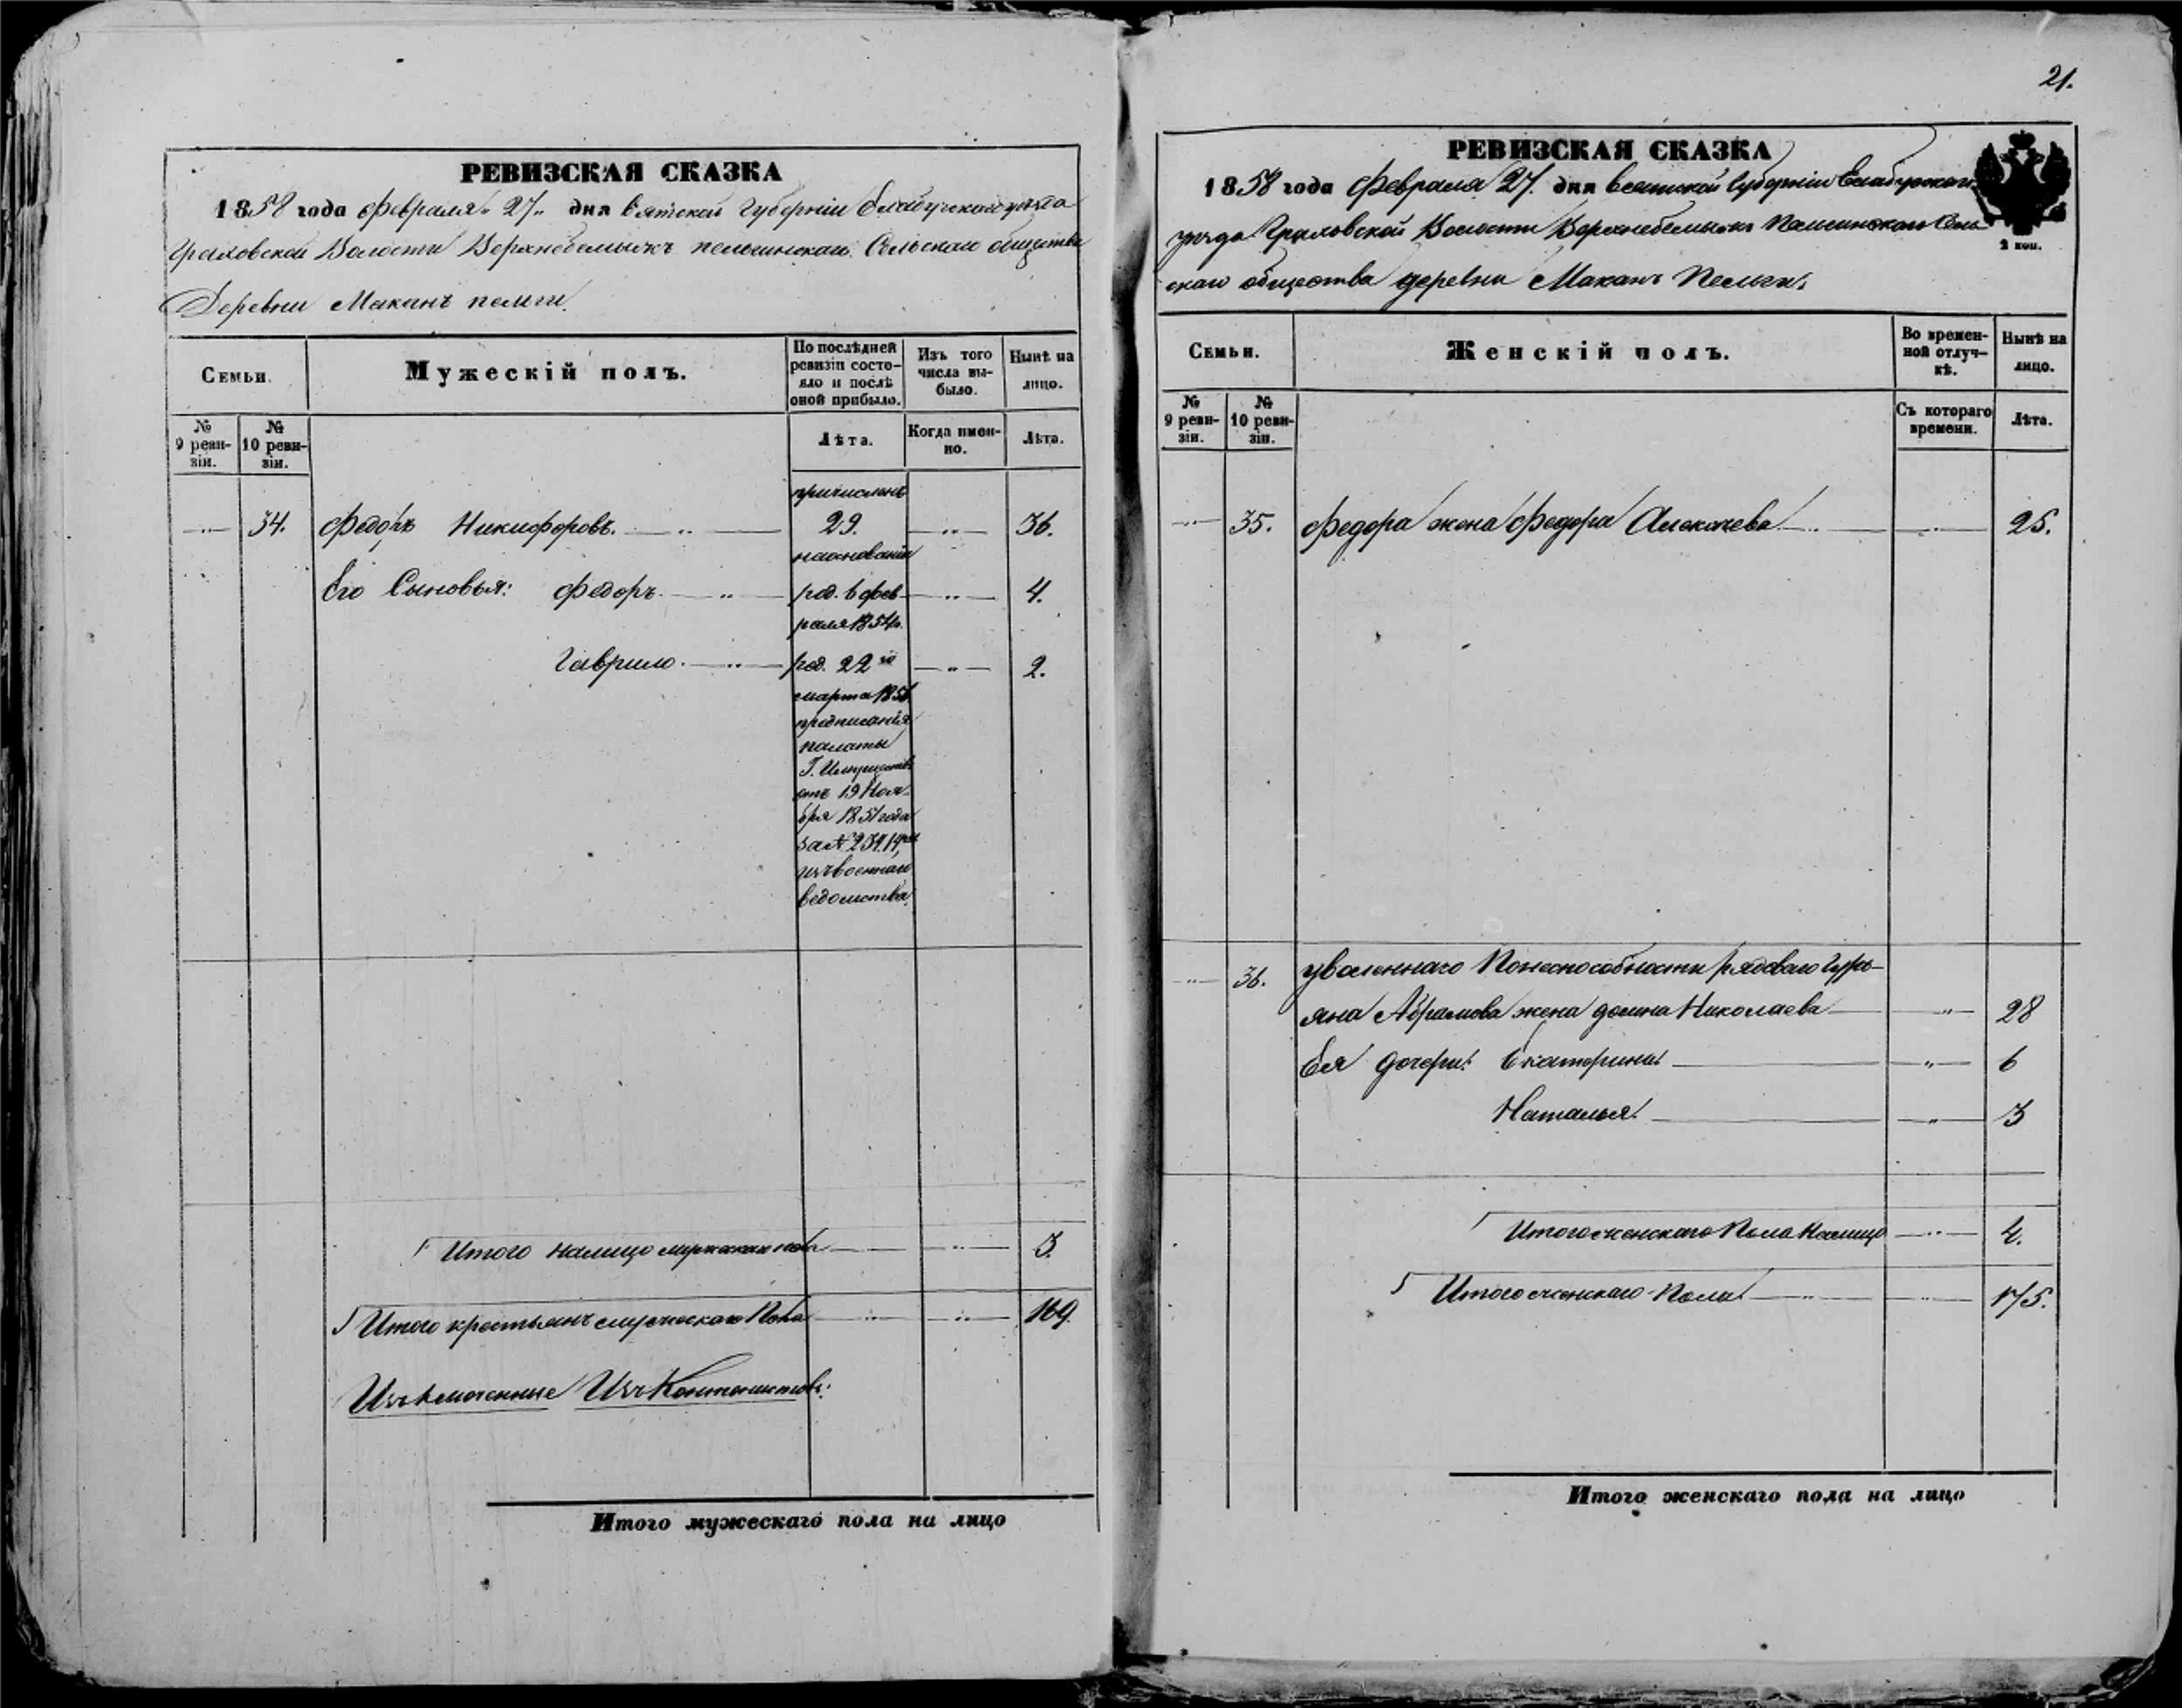 РЕВИЗСКАЯ СКАЗКА
1858 года Февраля 27 дня Вятской Губерніи Елабугскаго уѣзда
Граховской Волости Верхнебемыжъ пельгинскаго Сельскаго общества
Деревни Маканъ пельги.
Семьи.
Мужескій полъ.
По послѣдней ревизіи состояло и послѣ оной прибыло.
Изъ того числа выбыло.
Нынѣ на лицо.
№ 9 ревизіи.
№ 10 ревизіи.
Лѣта.
Когда именно.
Лѣта.
причисленъ
34. Федоръ Никифоровъ. 29. 36.
на основаніи
Его Сыновья: Федоръ род. 6 фев 4.
раля 1854 г.
Гаврило род. 22 го 2.
марта 1856
предписанія
палаты
Г. Имуществъ
отъ 19 Нояб
бря 1851 года
за №
изъ военнаго
ведомства.
Итого налицо мужескаго пола 3.
Итого крестьянъ мужескаго Пола 169.
Изъ Кантонистовъ:
Итого мужескаго пола на лицо
21.
РЕВИЗСКАЯ СКАЗКА
1858 года Февраля 27. дня Вятской Губерніи Елабугскаго
уѣзда Граховской Волости Верхнебемыжъ Пельгинскаго Сель
скаго общества деревни Маканъ Пельги.
2 коп.
Семьи.
Женскій полъ.
Во временной отлучкѣ.
Нынѣ на лицо.
№ 9 ревизіи.
№ 10 ревизіи.
Съ котораго времени.
Лѣта.
35. Федора жена Федора Алексеева 25.
36. уволеннаго По неспособности рядоваго Гурь
яна Абрамова жена домна Николаева 28
Ея дочери: Екатерина 6
Наталья 3
Итого женскаго Пола Налицо 4.
Итого женскаго Пола 175.
Итого женскаго пола на лицо